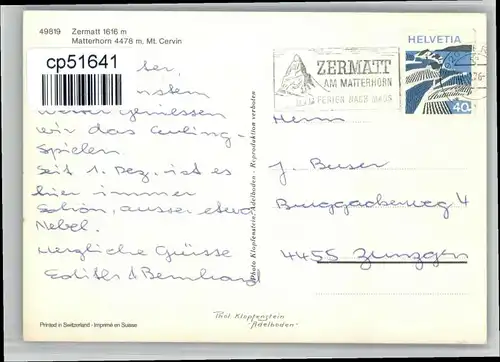 49819 Zermatt 1616 m
Matterhorn 4478 m, Mt. Cervin
cp51641
HELVETIA
40
ZERMATT
AM MATTERHORN
FERIEN NACH MASS
wir das Curling-
Spielen.
Seit 1. Dez. ist es
hier immer
Schön, ausser etwa
Nebel.
Herzliche Grüsse
Edith & Bernhard
Photo Klopfenstein, Adelboden - Reproduktion verboten
Herrn
J. Buser
Burggackerweg 4
4455 Zunzgen
Phot. Klopfenstein
"Adelboden"
Printed in Switzerland - Imprimé en Suisse